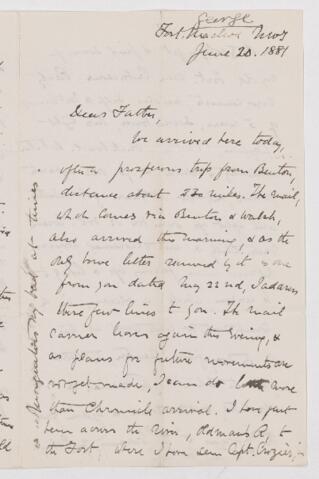 George
Fort Macleod NWT
June 20. 1881
Dear Father,
We arrived here today,
after prosperous trip from Benton,
distance about 220 miles. The mail,
which comes via Benton & Walsh,
also arrived this morning, & as the
only home letter received by it is one
from you dated May 22nd, I address
these few lines to you. The mail
carrier leaves again this evening, &
as plans for future movements are
not yet made, I can do little more
than chronicle arrival. I have just
been across the river, Oldman's R, to
the Fort, where I have seen Capt. Crozier,
mosquitoes very bad at times